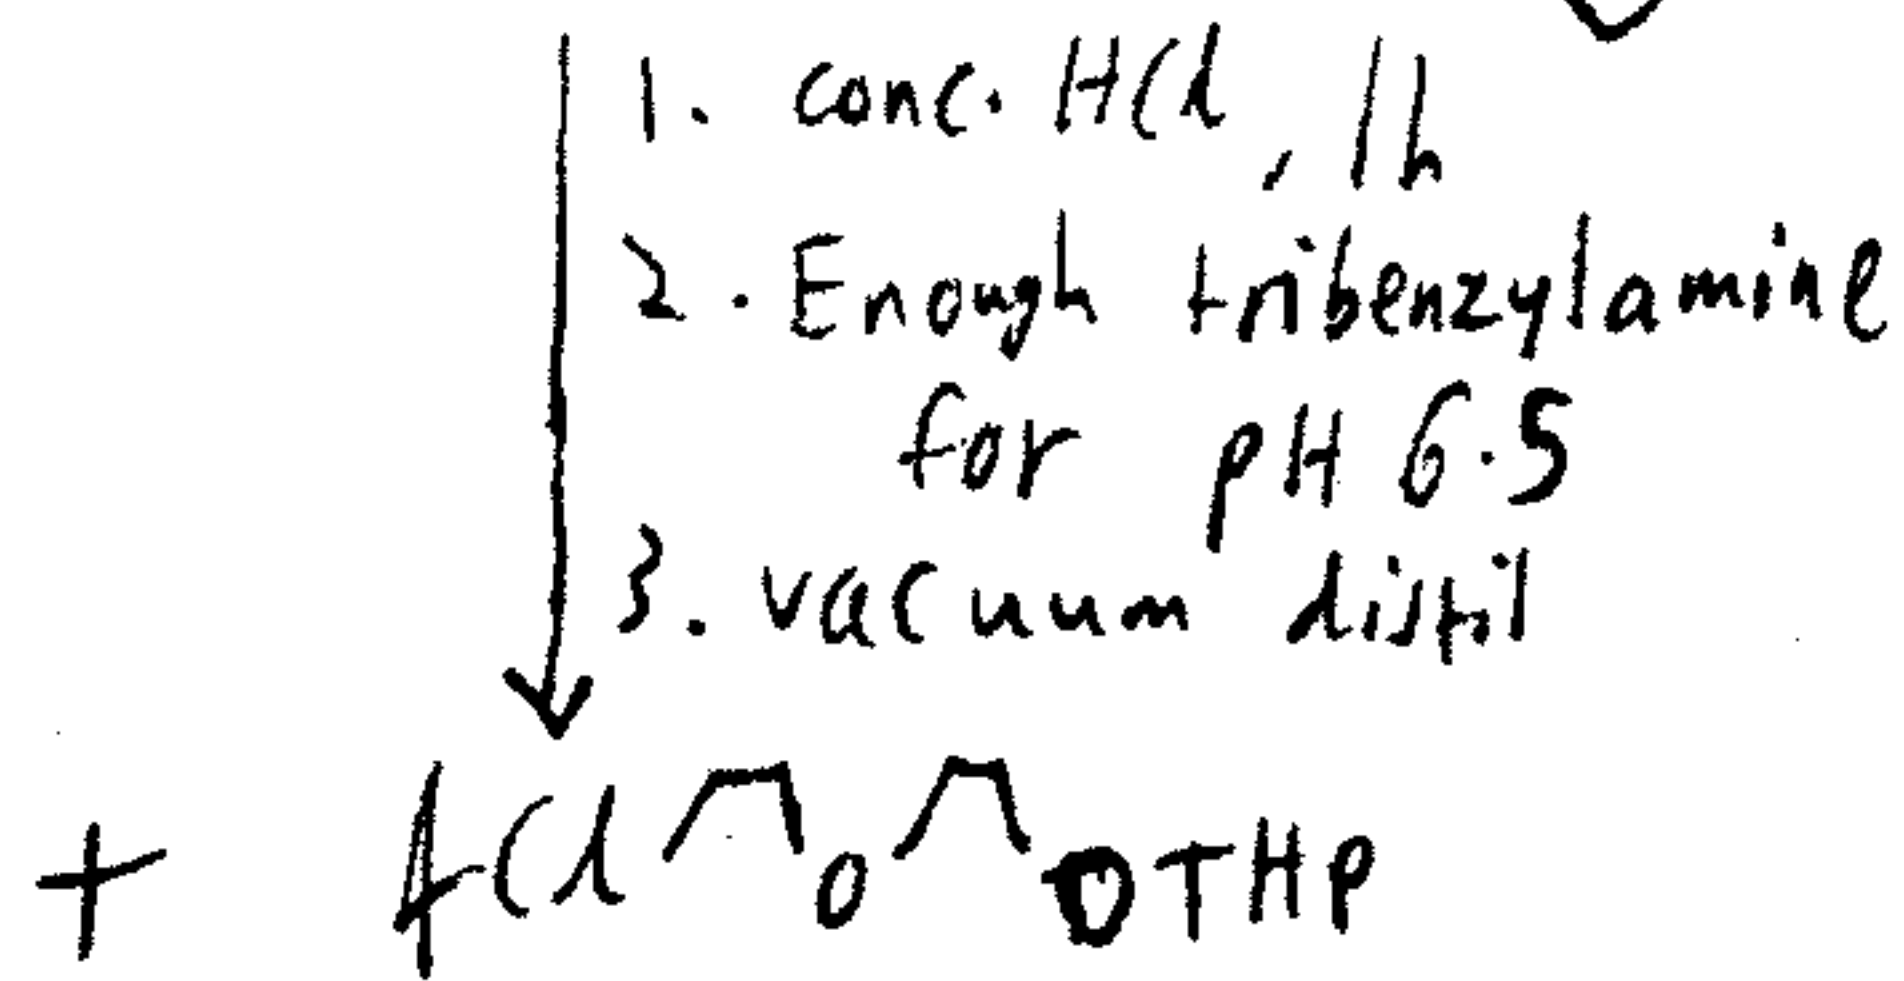 1. conc. HCl, 1h
2. Enough tribenzylamine
for pH 6.5
3. vacuum distil
+ 4Cl O OTHP